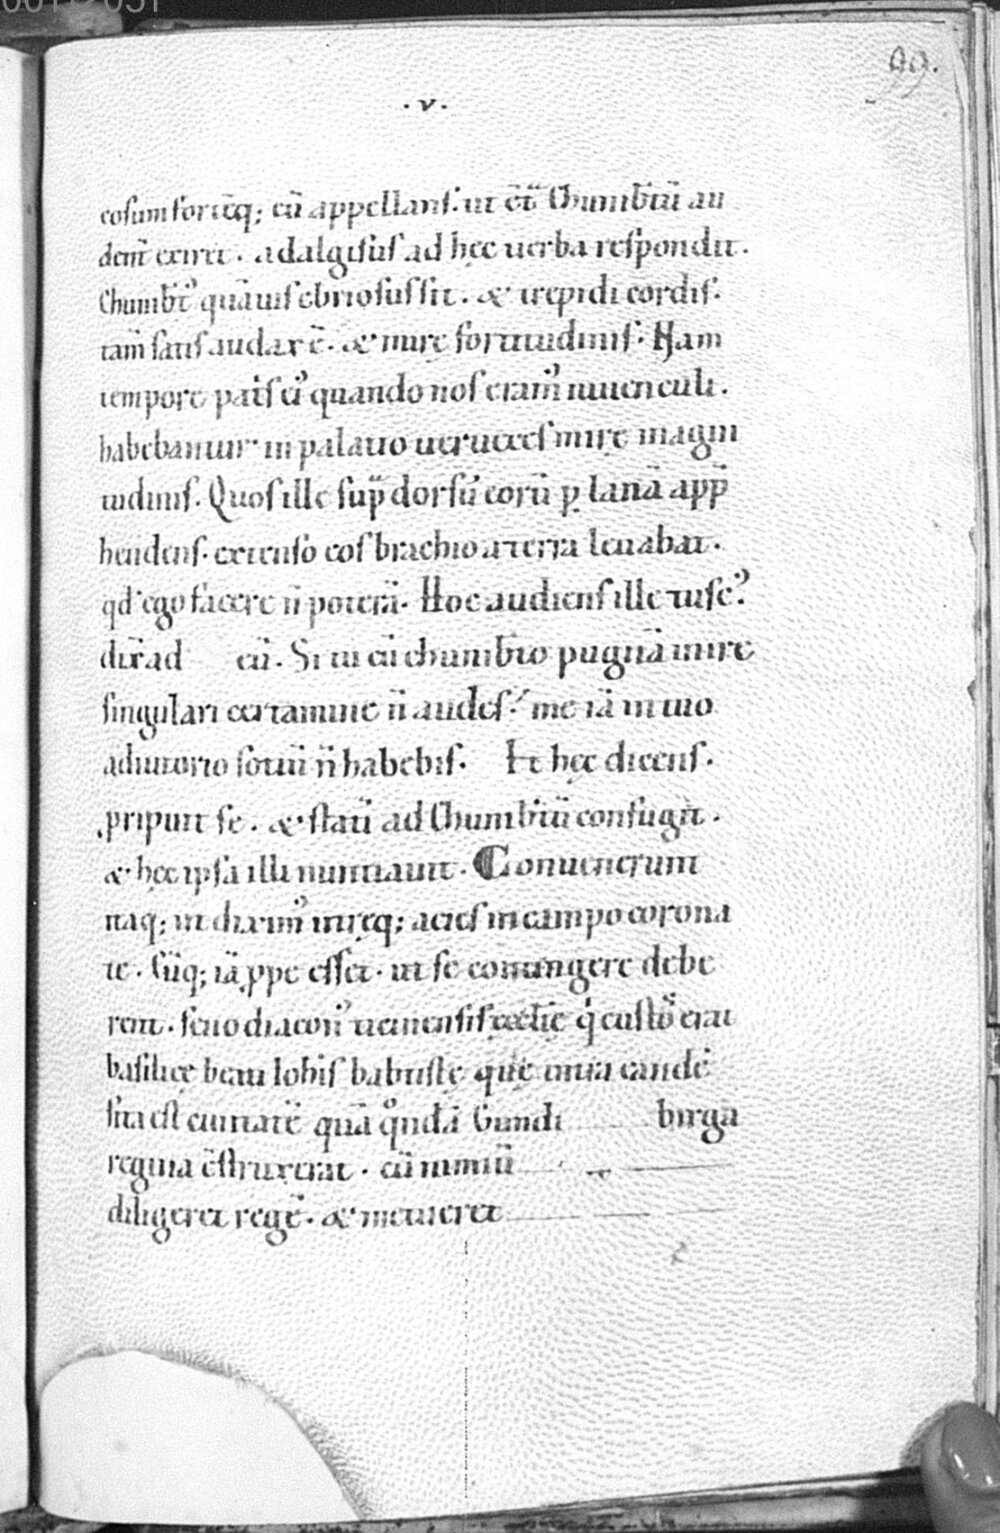 99.
·v·
cosum fortēq; cū appellanſ. ut ēt̄ Chunib̄tū au
dent̄ exiret. adalgiſuſ ad hęc uerba reſpondit.
Chunib̄t᾽ quāuiſ ebrioſuſ ſit. & trepidi cordiſ.
tam̄ ſatiſ audax ē. & mirę fortitudiniſ. Nam
tempore pat̄ſ ei᾽ quando noſ eram᾽ iuuenculi.
habebantur in palatio uerueceſ mirę magni
tudiniſ. Quoſ ille ſup̄ dorſū eorū ꝑ lanā app̄
hendenſ. extenſo eoſ brachio a terra leuabat.
qd᾽ ego facere n̄ poterā. Hoc audienſ ille tuſc᾽.
dix̄ ad eū. Si tu cū chunib̄to pugnā inire
ſingulari certamine n̄ audeſ. me iā in tuo
adiutorio ſotiū n̄ habebiſ. Et hęc dicenſ.
ꝓripuit ſe. & ſtatī ad Chunib̄tū confugit.
& hęc ipſa illi nuntiauit. Conuenerunt
itaq; ut dixim᾽ utręq; acieſ in campo corona
te. Cūq; iā ꝓpe eſſet. ut ſe coniungere debe
rent. ſeno diacon᾽ ticinenſiſ ęcclię qͥ cuſtoſ erat
baſilicę beati Iohiſ babtiſtę quę intra eandē
ſita eſt ciuitatē quā qͦndā Gundi birga
regina c̄ſtruxerat. cū nimiū
diligeret regē. & metueret